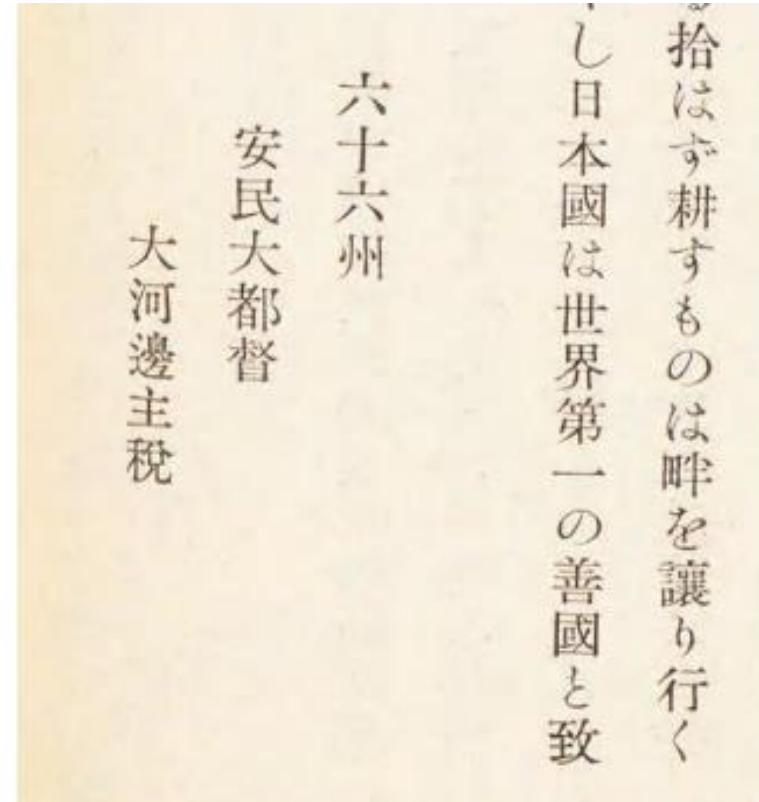 拾はず耕すものは畔を讓り行く
し日本國は世界第一の善國と致
六十六州
安民大都督
大河邊主税